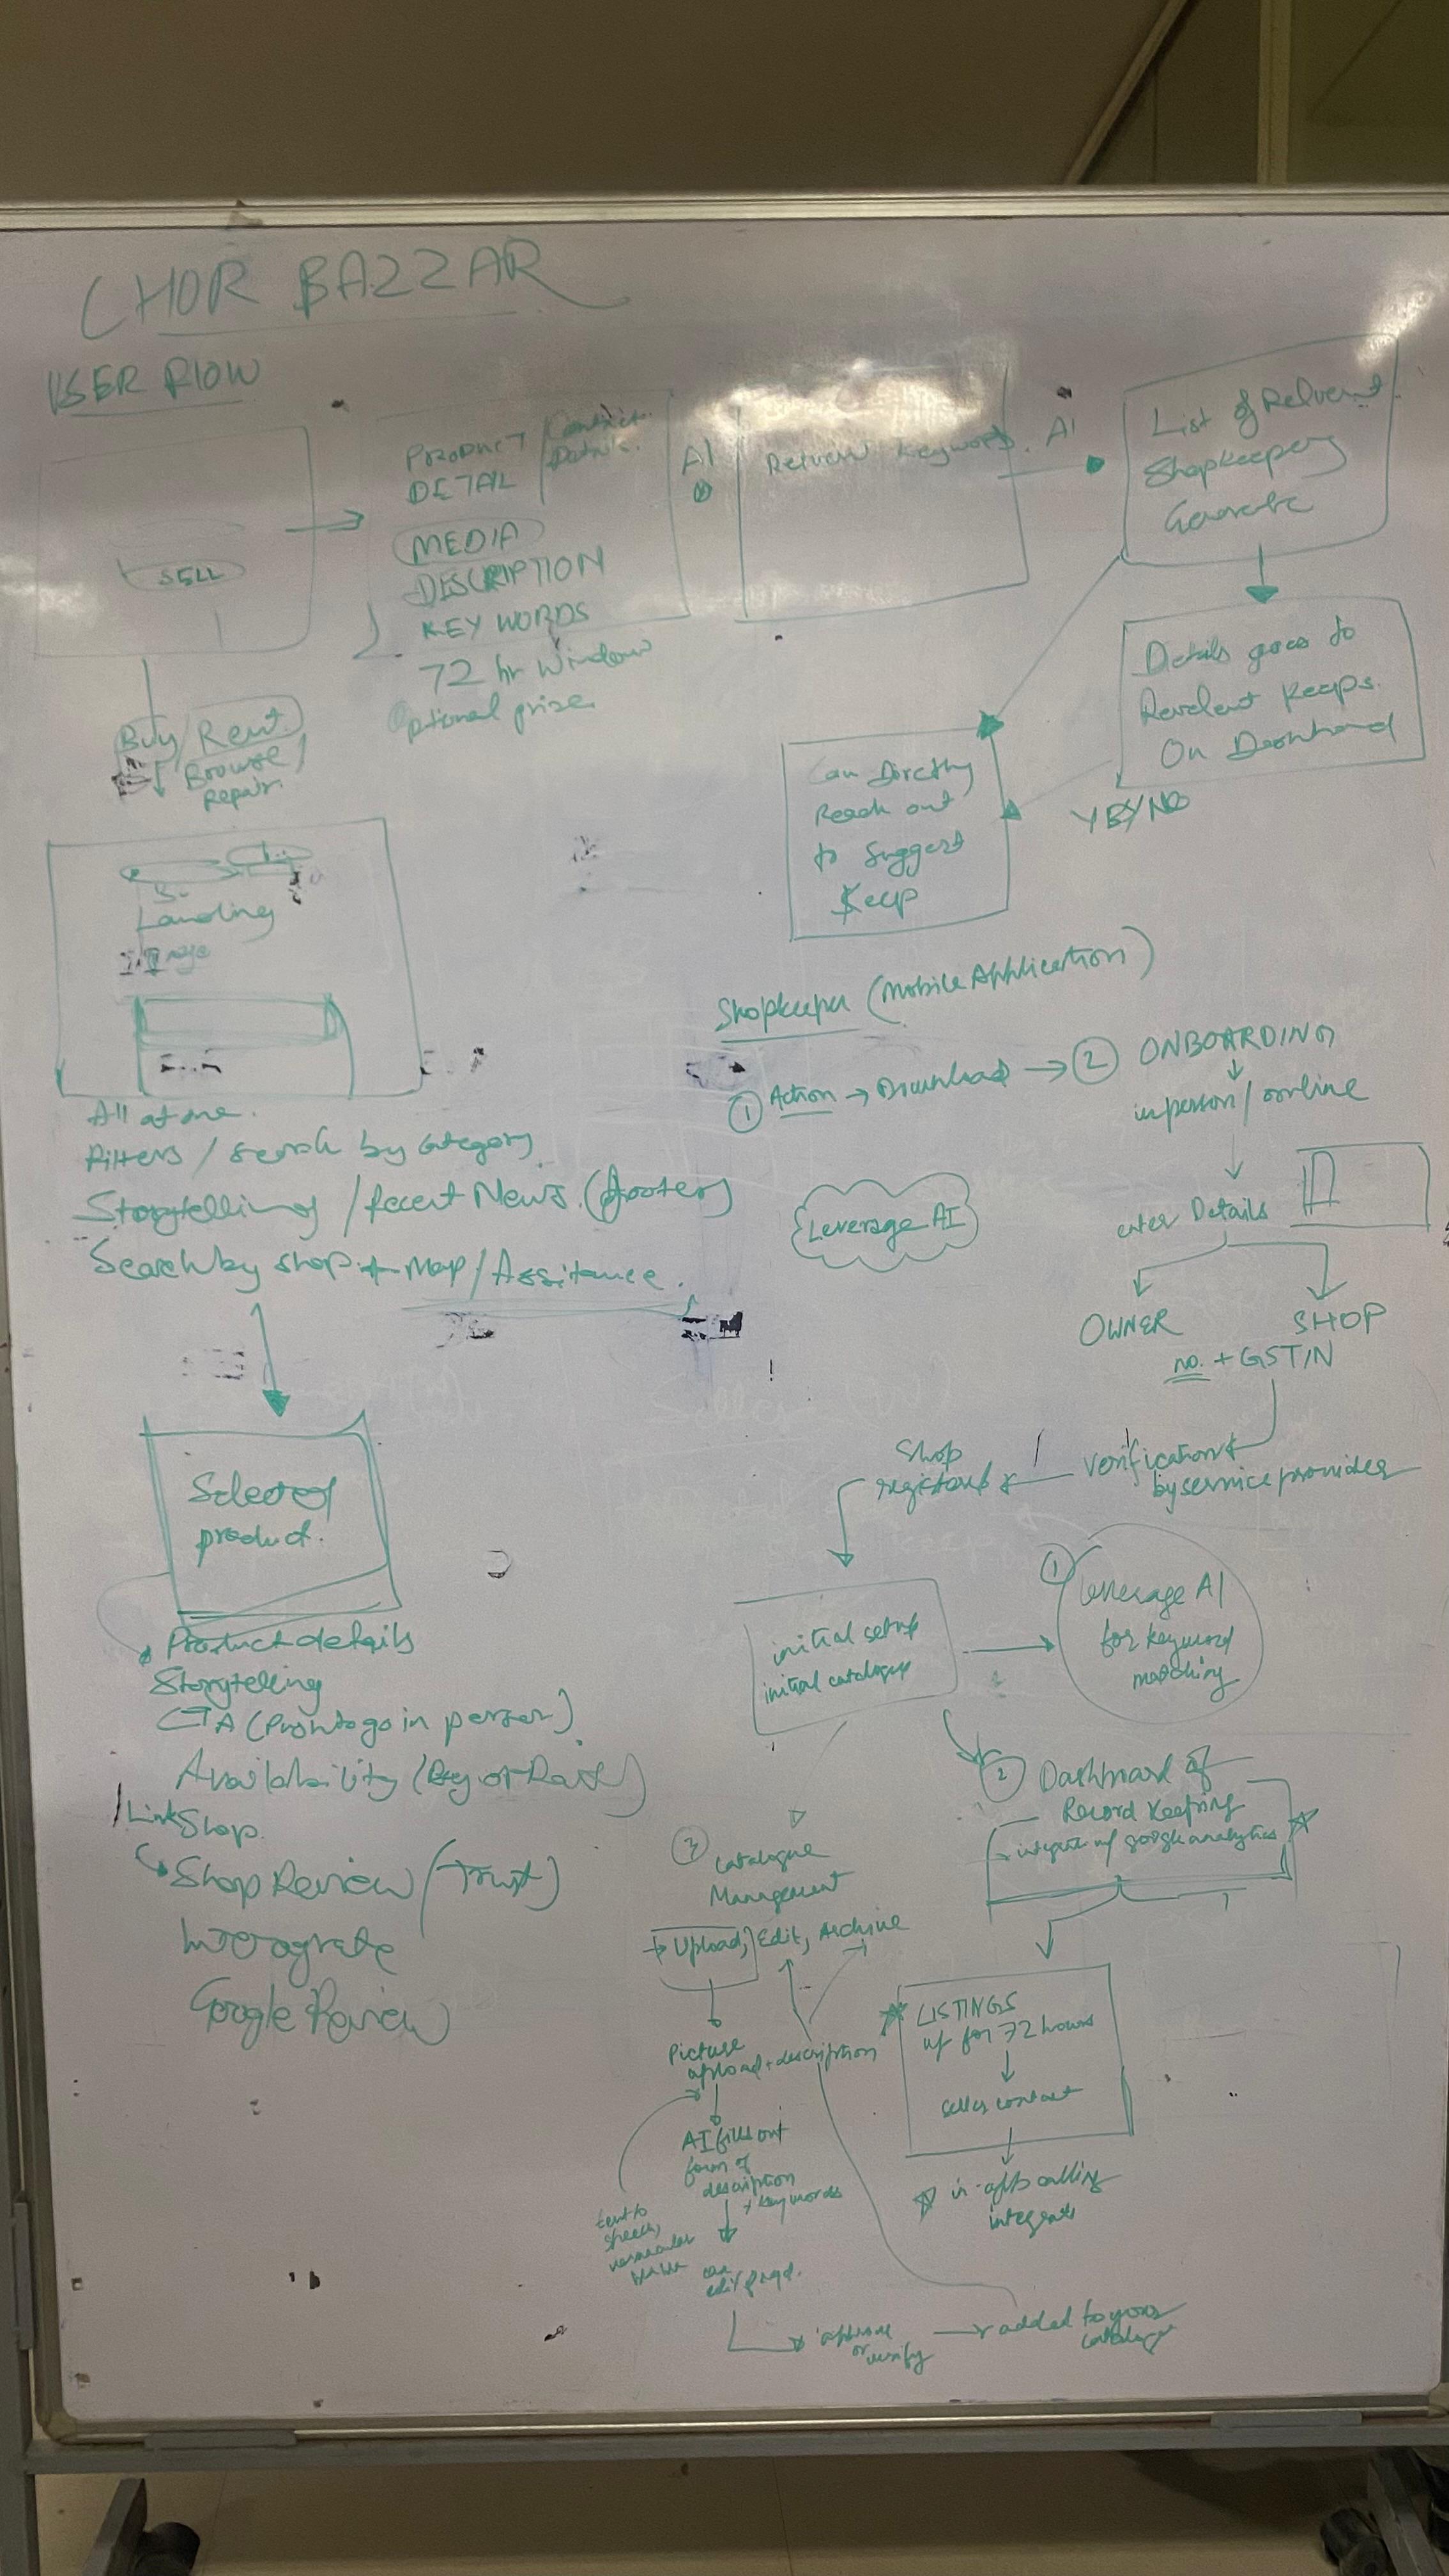 CHOR BAZZAR
USER FLOW
SELL
PRODUCT / Contact
DETAIL / Details
MEDIA
DESCRIPTION
KEY WORDS
72 hr Window
Optional prize
AI
Relvent Keywords
AI
List of Relvent
Shopkeepers
Generate
Details goes to
Revelent Keeps.
On Dashboard
YES/NO
Can Directly
Reach out
to Suggest
Keep
Buy / Rent
Browse /
Repair
Landing
Page
All at one.
Filters / Search by Category
Storytelling / Recent News (footer)
Search by shop + Map / Assitance.
Selected
product.
Product details
Storytelling
CTA (in person)
Availability (Buy or Rent)
Link Shop
Shop Review (Trust)
Google Review
Shopkeeper (Mobile Application)
1 Action → Download → 2 ONBOARDING
in person / online
enter Details
Leverage AI
OWNER SHOP
no. + GSTIN
verification
by service provider
Shop
initial setup
initial catalogue
1 Leverage AI
for keyword
matching
2 Dashboard of
Record Keeping
→ integrate w/ google analytics
3 Catalogue
Management
→ Upload, Edit, Archive
Picture
upload + description
AI fills out
form of
description
+ keywords
text to
speech,
vernacular
can
edit
approve
or verify
→ added to your
catalogue
LISTINGS
up for 72 hours
seller contact
in-app calling
integrate